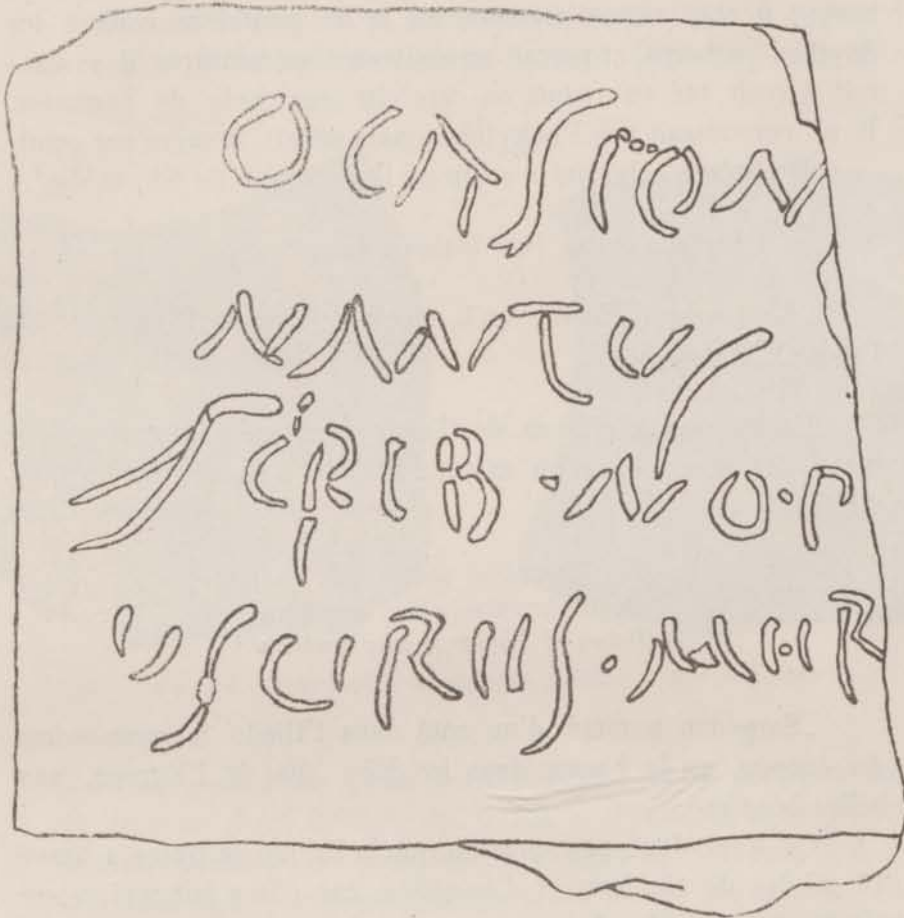 OCASION
NANTUS
SCRIB·NO·P
USCIRIIS·MIIR